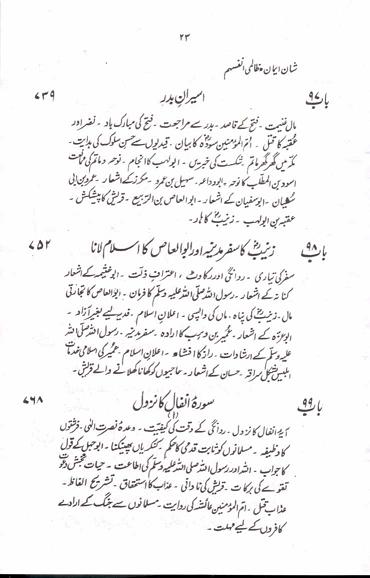 ۲۳
شان ایمان ظالمی انفسہم
باب ۹۷ اسیرانِ بدر ۷۳۹
مالِ غنیمت ۔ فتح کے قاصد ۔ بدر سے مراجعت ۔ فتح کی مبارک باد ۔ نضر اور
عقبہ کا قتل ۔ اُم المؤمنین سودہؓ کا بیان ۔ قیدیوں سے حسنِ سلوک کی ہدایت ۔
مکہ میں گھر گھر ماتم ۔ شکست کی خبریں ۔ ابولہب کا انجام ۔ نوحہ و ماتم کی ممانعت
اسود بن المطلب کا نوحہ ۔ ابو وداعہ ۔ سہیل بن عمرو ۔ مکرز کے اشعار ۔ عمرو بن ابی
سفیان ۔ ابوسفیان کے اشعار ۔ ابوالعاص بن الربیع ۔ قریش کا پیشکش ۔
عتبہ بن ابولہب ۔ زینبؓ کا ہار ۔
باب ۹۸ زینبؓ کا سفر مدینہ اور ابوالعاص کا اسلام لانا ۷۵۲
سفر کی تیاری ۔ روانگی اور رکاوٹ ۔ اعترافِ ذلت ۔ ابوخیثمہ کے اشعار
کنانہ کے اشعار ۔ رسول اللہ صلی اللہ علیہ وسلم کا فرمان ۔ ابوالعاص کا تجارتی
مال ۔ زینبؓ کی پناہ ۔ مال کی واپسی ۔ اعلانِ اسلام ۔ فدیہ لیے بغیر آزاد ۔
ابوعزہ کے اشعار ۔ عمیر بن وہب کا ارادہ ۔ سفر مدینہ ۔ رسول اللہ صلی اللہ
علیہ وسلم کے ارشادات ۔ راز کا افشاء ۔ اعلانِ اسلام ۔ عمیر کی اسلامی خدمات
ابلیس بشکل سراقہ ۔ حسان کے اشعار ۔ حاجیوں کو کھانا کھلانے والے قریش ۔
باب ۹۹ سورۂ انفال کا نزول ۷۶۸
(۱)
آیۂ انفال کا نزول ۔ روانگی کے وقت کی کیفیت ۔ وعدۂ نصرتِ الٰہی ۔ فرشتوں
کا وظیفہ ۔ مسلمانوں کو ثابت قدمی کا حکم ۔ کنکریاں پھینکنا ۔ ابوجہل کے قول
کا جواب ۔ اللہ اور رسول اللہ صلی اللہ علیہ وسلم کی اطاعت ۔ حیات بخش دعوت
تقوے کی برکات ۔ قریش کی نادانی ۔ عذاب کا استحقاق ۔ تشریح الفاظ ۔
عذاب قتل ۔ ام المؤمنین عائشہ کی روایت ۔ مسلمانوں سے جنگ کے ارادے
کافروں کے لیے مہلت ۔